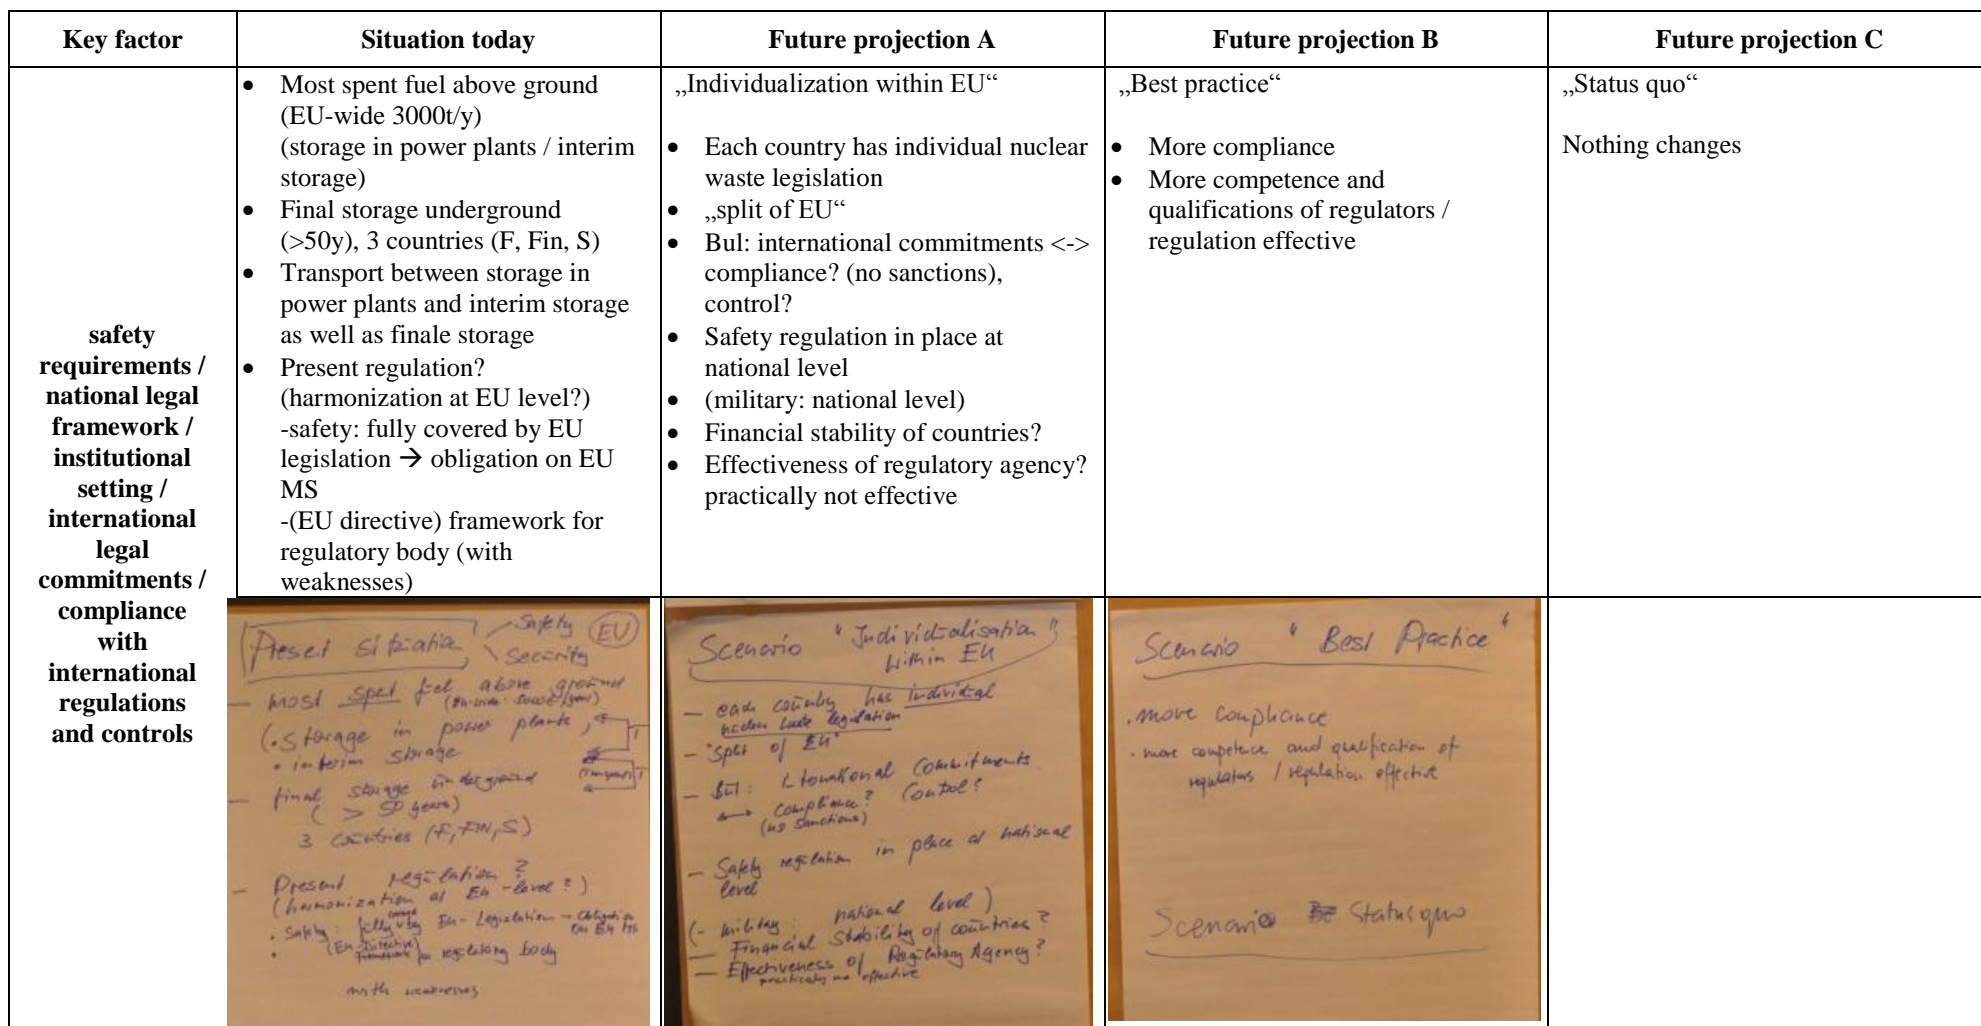 Key factor
Situation today
Future projection A
Future projection B
Future projection C
safety
requirements /
national legal
framework /
institutional
setting /
international
legal
commitments /
compliance
with
international
regulations
and controls
• Most spent fuel above ground
(EU-wide 3000t/y)
(storage in power plants / interim
storage)
• Final storage underground
(>50y), 3 countries (F, Fin, S)
• Transport between storage in
power plants and interim storage
as well as finale storage
• Present regulation?
(harmonization at EU level?)
-safety: fully covered by EU
legislation → obligation on EU
MS
-(EU directive) framework for
regulatory body (with
weaknesses)
„Individualization within EU“
• Each country has individual nuclear
waste legislation
• „split of EU“
• Bul: international commitments <->
compliance? (no sanctions),
control?
• Safety regulation in place at
national level
• (military: national level)
• Financial stability of countries?
• Effectiveness of regulatory agency?
practically not effective
„Best practice“
• More compliance
• More competence and
qualifications of regulators /
regulation effective
„Status quo“
Nothing changes
Present Situation
Safety
Security
EU
– most spent fuel above ground
(EU-wide: 3000t/year)
(• Storage in power plants,
• interim storage
Transport
– final storage underground
( > 50 years)
3 countries (F, FIN, S)
– Present regulation?
(harmonization at EU-level?)
• Safety: fully covered by EU-Legislation → Obligation
on EU MS
• (EU-Directive) Framework regulatory body
with weaknesses
Scenario "Individualisation"
within EU
– each country has individual
nuclear waste legislation
– "Split of EU"
– but: International Commitments
↔ Compliance? Control?
(no sanctions)
– Safety regulation in place at national
level
(– military: national level)
– Financial Stability of countries?
– Effectiveness of Regulatory Agency?
practically no effective
Scenario "Best Practice"
• more compliance
• more competence and qualification of
regulators / regulation effective
Scenario Status quo